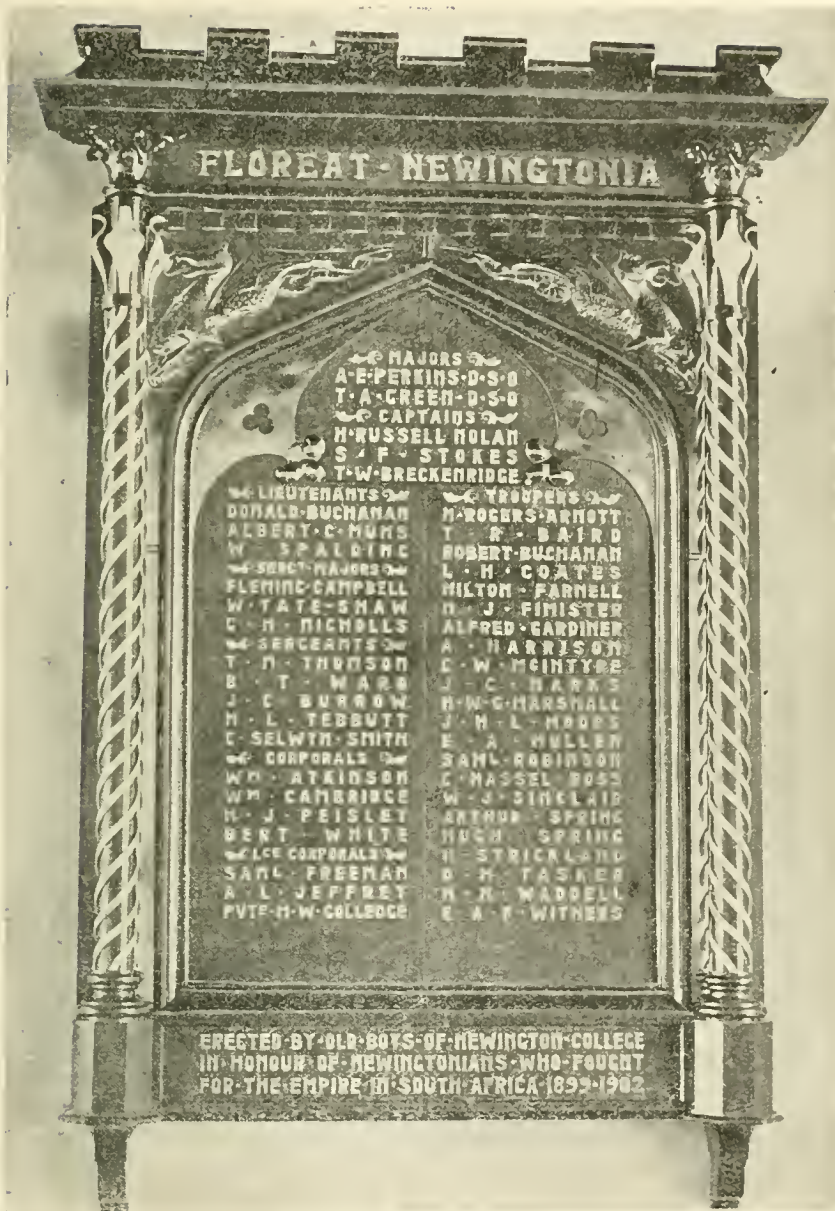 FLOREAT · NEWINGTONIA
MAJORS
A·E·PERKINS·D·S·O
T·A·GREEN·D·S·O
CAPTAINS
H·RUSSELL NOLAN
S·F·STOKES
T·W·BRECKENRIDGE
LIEUTENANTS
DONALD·BUCHANAN
ALBERT·C·MUMS
W·SPALDING
SERGT·MAJORS
FLEMING·CAMPBELL
W·TATE-SHAW
C·H·NICHOLLS
SERGEANTS
T·M·THOMSON
B·T·WARD
J·C·BURROW
H·L·TEBBUTT
C·SELWYN·SMITH
CORPORALS
WM·ATKINSON
WM·CAMBRIDGE
H·J·PEISLEY
BERT·WHITE
LCE CORPORALS
SAML·FREEMAN
A·L·JEFFREY
PVTE·H·W·COLLEDGE
TROOPERS
H·ROGERS·ARNOTT
T·R·BAIRD
ROBERT·BUCHANAN
L·H·COATES
MILTON·FARNELL
H·J·FINISTER
ALFRED·GARDINER
A·HARRISON
C·W·MCINTYRE
J·C·MARKS
H·W·G·MARSHALL
J·H·L·MOORS
E·A·MULLEN
SAML·ROBINSON
C·MASSEL ROSS
W·J·SINCLAIR
ARTHUR·SPRING
HUGH·SPRING
H·STRICKLAND
O·H·TASKER
H·H·WADDELL
E·A·F·WITHERS
ERECTED·BY·OLD·BOYS·OF·NEWINGTON·COLLEGE
IN·HONOUR·OF·NEWINGTONIANS·WHO·FOUGHT
FOR·THE·EMPIRE·IN·SOUTH·AFRICA·1899·1902